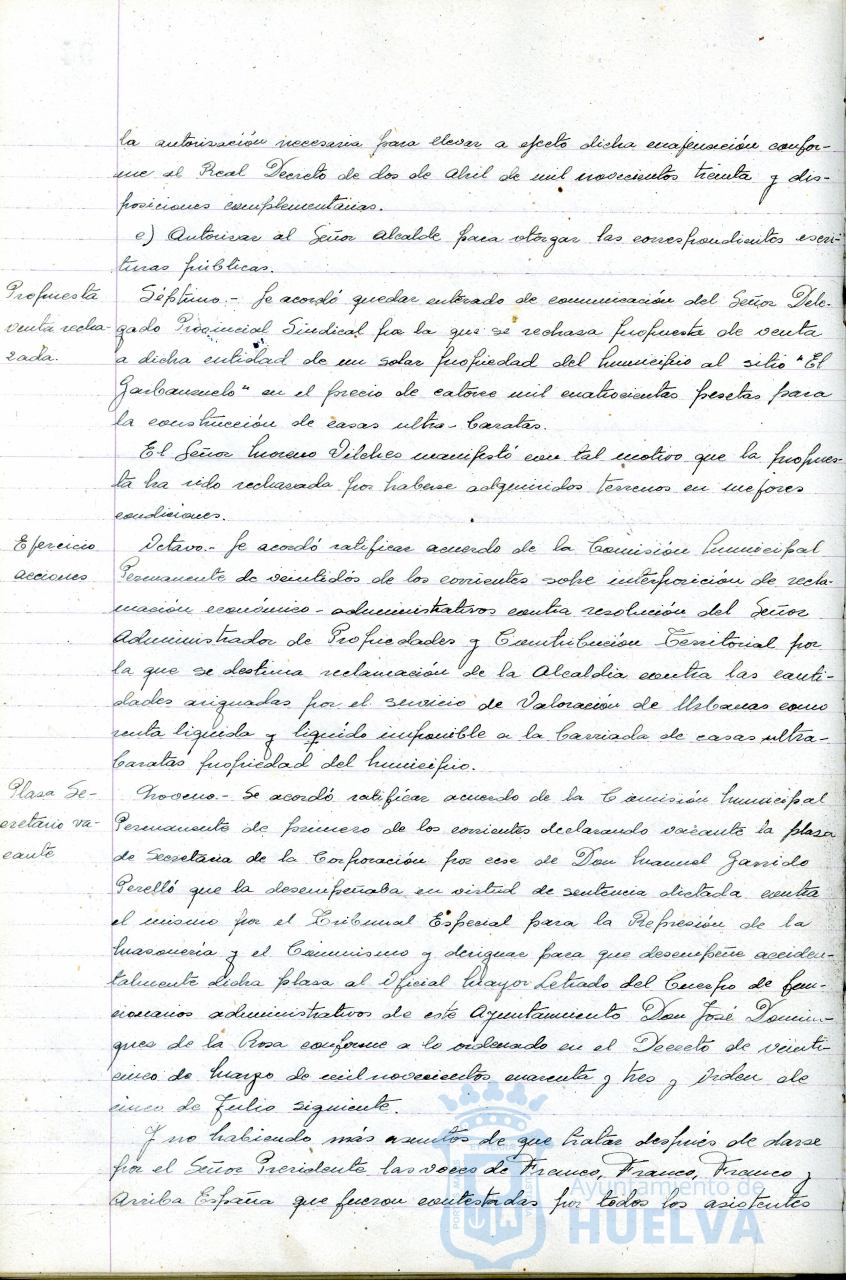 la autorización necesaria para llevar a efecto dicha enajenación confor-
me al Real Decreto de dos de Abril de mil novecientos treinta y dis-
posiciones complementarias.
e) Autorizar al Señor Alcalde para otorgar las correspondientes escri-
turas públicas.
Propuesta
venta recha-
zada.
Séptimo.- Se acordó quedar enterado de comunicación del Señor Dele-
gado Provincial Sindical por la que se rechasa propuesta de venta
a dicha entidad de un solar propiedad del Municipio al sitio "El
Garbansuelo" en el precio de catorce mil cuatrocientas pesetas para
la construcción de casas ultra-baratas.
El Señor Moreno Vilches manifestó con tal motivo que la propues-
ta ha sido rechasada por haberse adquiridos terrenos en mejores
condiciones.
Ejercicio
acciones
Octavo.- Se acordó ratificar acuerdo de la Comisión Municipal
Permanente de veintidós de los corrientes sobre interposición de recla-
mación económico-administrativos contra resolución del Señor
Administrador de Propiedades y Contribución Territorial por
la que se destima reclamación de la Alcaldia contra las canti-
dades asignadas por el servicio de Valoración de Urbanas como
renta liquida y liquido imponible a la barriada de casas ultra-
baratas propiedad del Municipio.
Plasa Se-
cretario va-
cante
Noveno.- Se acordó ratificar acuerdo de la Comisión Municipal
Permanente de primero de los corrientes declarando vacante la plasa
de Secretaria de la Corporación por cese de Don Manuel Garrido
Perelló que la desempeñaba en virtud de sentencia dictada contra
el mismo por el Tribunal Especial para la Represión de la
Masonería y el Comunismo y designar para que desempeñe acciden-
talmente dicha plasa al Oficial Mayor Letrado del Cuerpo de fun-
cionarios administrativos de este Ayuntamiento Don José Domin-
gues de la Rosa conforme a lo ordenado en el Decreto de veinti-
cinco de Marzo de mil novecientos cuarenta y tres y Orden de
cinco de Julio siguiente.
Y no habiendo más asuntos de que tratar después de darse
por el Señor Presidente las voces de Franco, Franco, Franco y
Arriba España que fueron contestadas por todos los asistentes
Ayuntamiento de
HUELVA